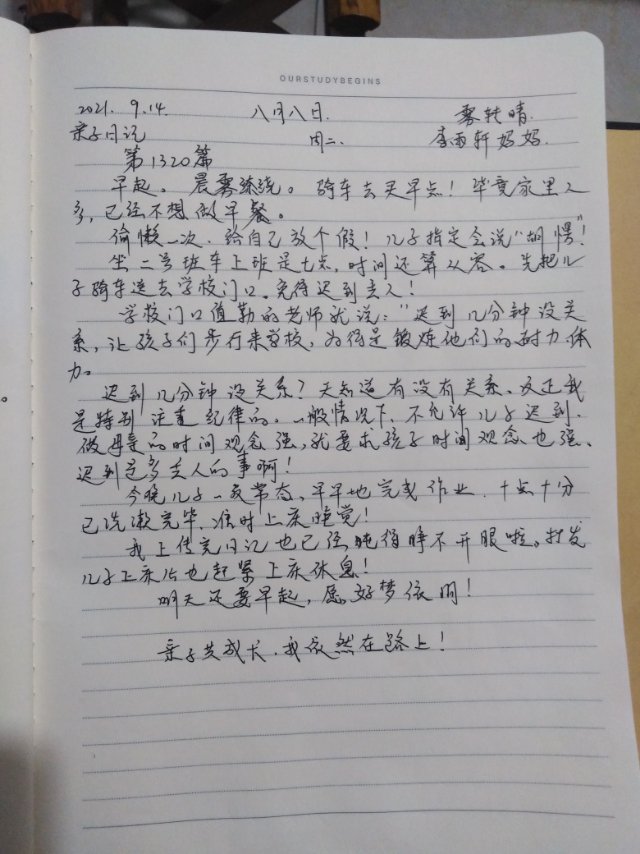 OURSTUDYBEGINS
2021. 9.14. 八月八日. 雾转晴.
亲子日记 周二. 李雨轩妈妈.
第1320篇
早起。晨雾缭绕。骑车去买早点！毕竟家里人
多，已经不想做早餐。
偷懒一次，给自己放个假！儿子指定会说"胡愣"！
坐二号班车上班是七点，时间还算从容。先把儿
子骑车送去学校门口。免得迟到丢人！
学校门口值勤的老师就说："迟到几分钟没关
系，让孩子们步行来学校，为得是锻炼他们的耐力、体
力。
迟到几分钟没关系？天知道有没有关系、反正我
是特别注重纪律的。一般情况下，不允许儿子迟到.
做母亲的时间观念强，就要求孩子时间观念也强、
迟到是多丢人的事啊！
今晚儿子一反常态、早早地完成作业．十点十分
已洗漱完毕、准时上床睡觉！
我上传完日记也已经困得睁不开眼啦。打发
儿子上床后也赶紧上床休息！
明天还要早起，愿好梦依旧！
亲子共成长．我依然在路上！